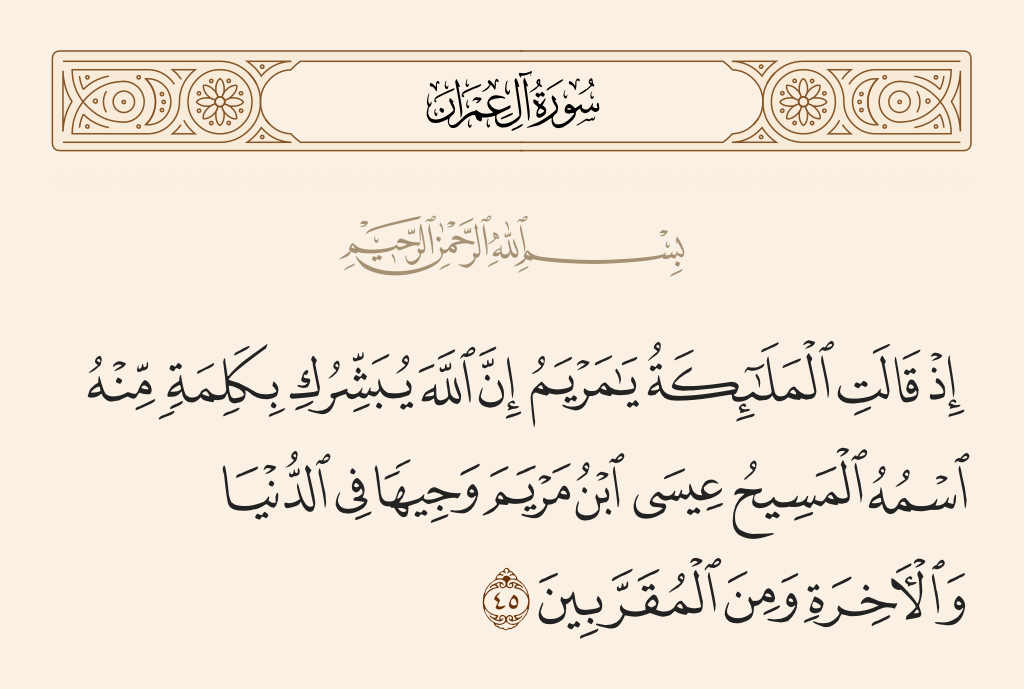 سُورَةُ آلِ عِمْرَان
بِسْمِ ٱللَّهِ ٱلرَّحْمَٰنِ ٱلرَّحِيمِ
إِذْ قَالَتِ ٱلْمَلَٰٓئِكَةُ يَٰمَرْيَمُ إِنَّ ٱللَّهَ يُبَشِّرُكِ بِكَلِمَةٍ مِّنْهُ
ٱسْمُهُ ٱلْمَسِيحُ عِيسَى ٱبْنُ مَرْيَمَ وَجِيهًا فِى ٱلدُّنْيَا
وَٱلْأَخِرَةِ وَمِنَ ٱلْمُقَرَّبِينَ ٤٥